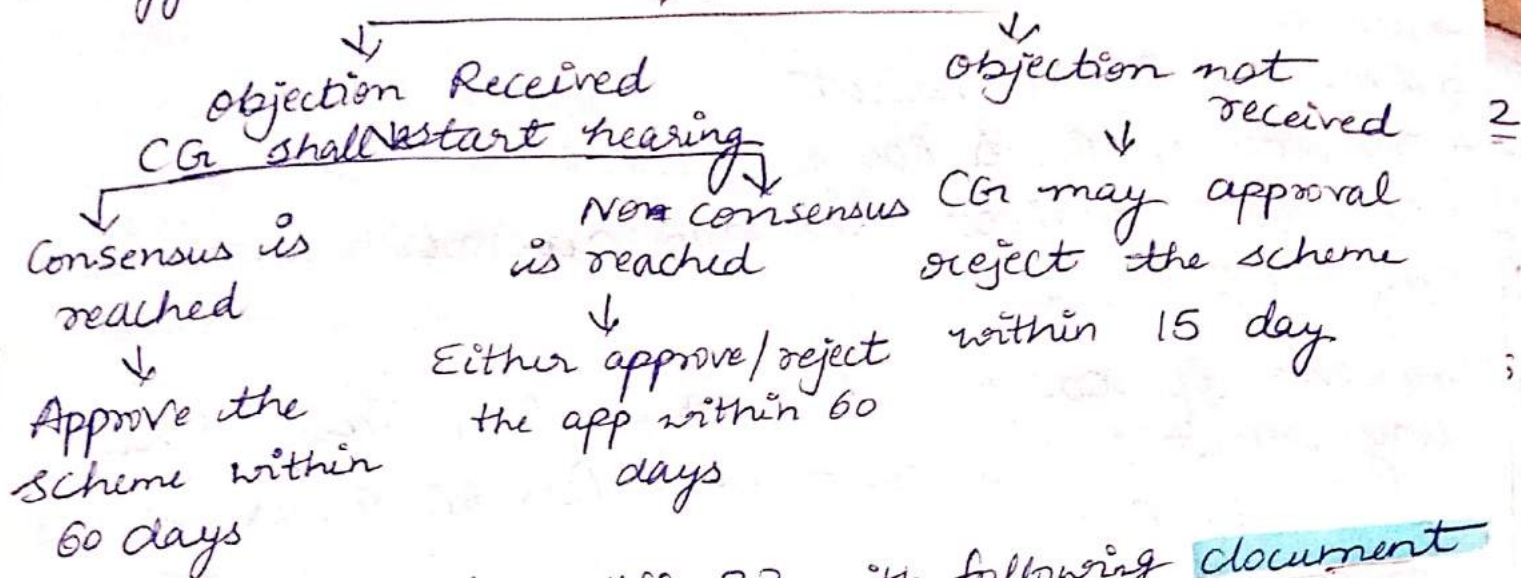 Objection Received
CG shall start hearing
Consensus is
reached
Approve the
scheme within
60 days
Non consensus
is reached
Either approve/reject
the app within 60
days
Objection not
received
CG may approval
reject the scheme
within 15 day
2
;
following document